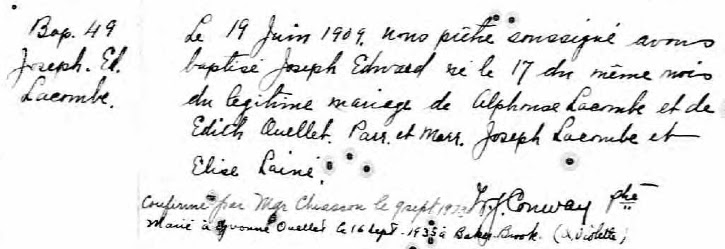 Bap. 49
Joseph. Ed.
Lacombe.
Le 19 Juin 1909, nous prêtre soussigné avons
baptisé Joseph Edward né le 17 du même mois
du légitime mariage de Alphonse Lacombe et de
Edith Ouellet. Parr. et Marr. Joseph Lacombe et
Elise Lainé.
Confirmé par Mgr Chiasson le 9 sept 19 Conway ptre
Marié à Yvonne Ouellet le 16 Sept. 1935 à Baker-Brook. (Violette)